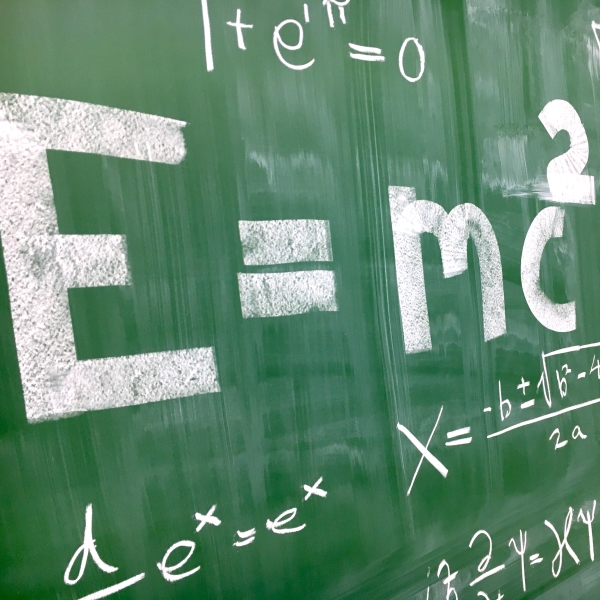 1 + e^{iπ} = 0
E = mc²
x = -b ± √b² - 4
2a
d
e^x = e^x
iħ ∂ ψ = ℋψ